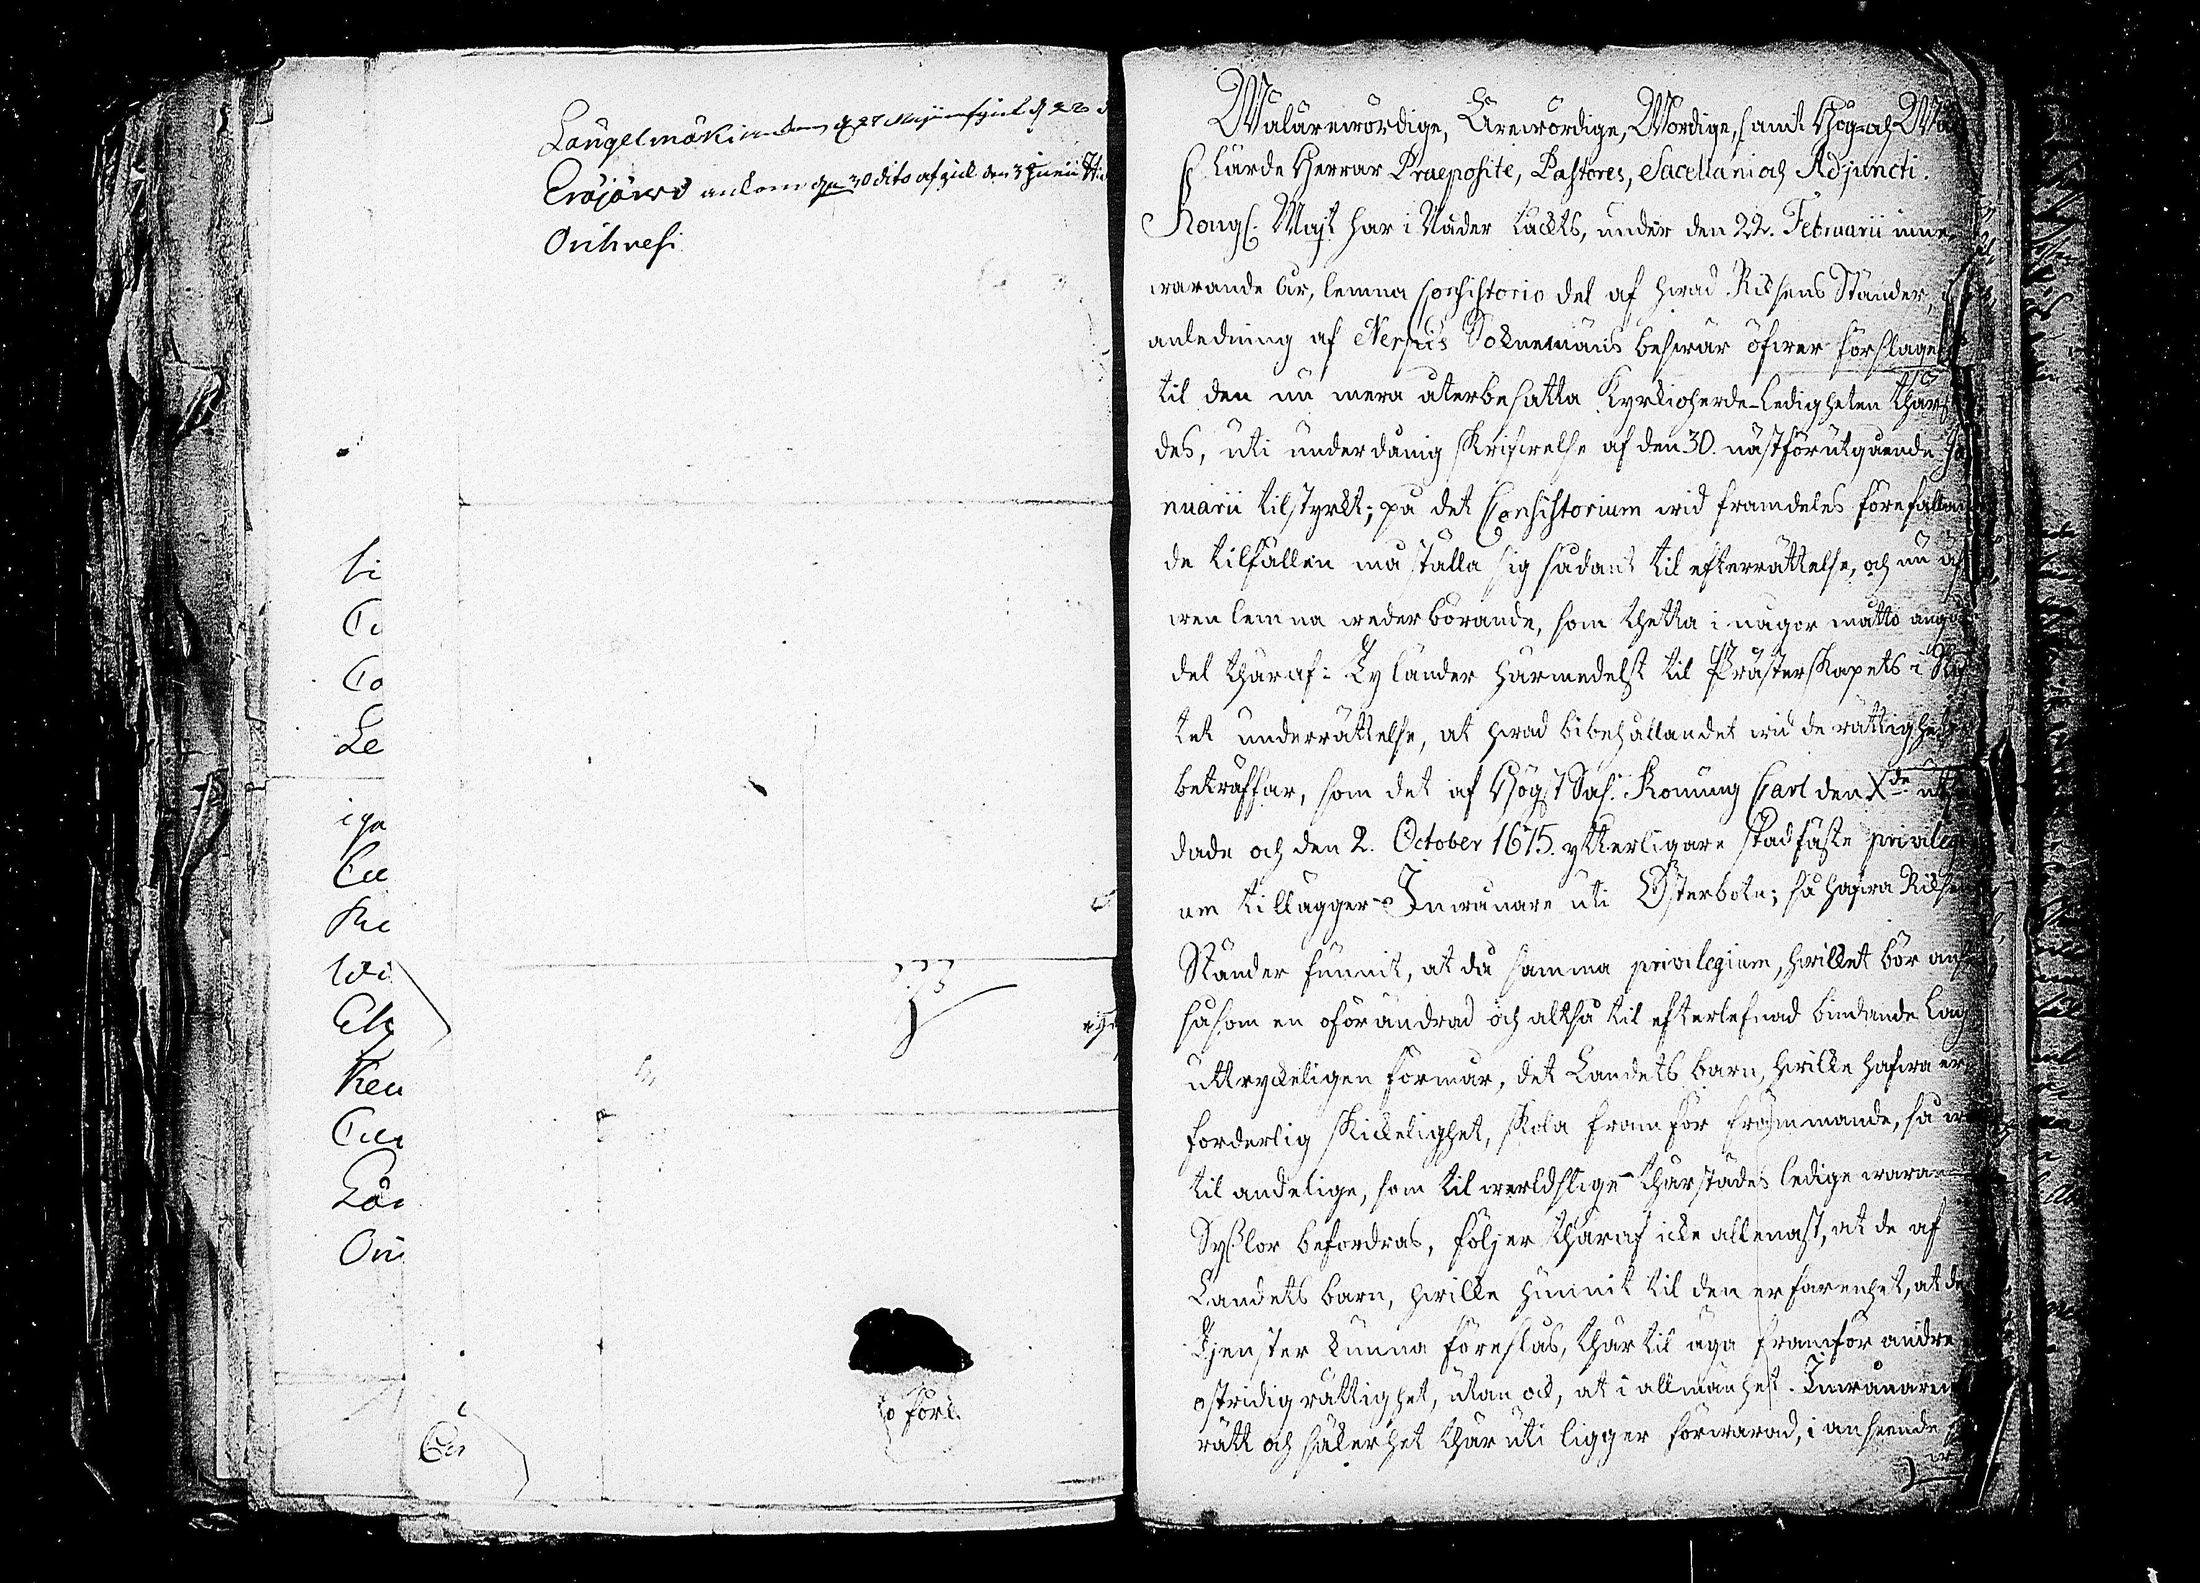 Längelmäki ankom d 27 Maji afgick d 28 d
Eräjärvi ankom den 30 dito afgick den 3 Junii
Orihvesi
Li
Co
Le
iga
Ken
Län
Ori
to förl.
Wälärewördige, Ärewördige, Wördige, samt Hög- och Wäl
Lärde Herrar Praeposite, Pastores, Sacellani och Adjuncti.
Kongl. Maj:t har i Nåder täckts, under den 22. Februarii inne-
warande år, lemna Consistorio del af hwad Riksens Ständer, i
anledning af Nerpis Soknemäns beswär öfwer förslaget
til den nu mera återbesatta Kyrkioherde-Ledigheten thärstä
des, uti underdånig Skrifwelse af den 30. nästförutgående Ja
nuarii tilstyrkt; på det Consistorium wid framdeles förefallan
de tilfällen må ställa sig sådant til efterrättelse, och nu äf
wen lemna wederbörande, som thetta i någor måtto angår
del thäraf: Ty länder härmedelst til Prästerskapets i Stif
tet underrättelse, at hwad bibehållandet wid de rättigheter
beträffar, som det af Högst Sal. Konung Carl den X:de utfär
dade och den 2. October 1675. ytterligare stadfäste privilegi
um tillägger Inwånare uti Österbotn; så hafwa Riksens
Ständer funnit, at då samma privilegium, hwilket bör anses
såsom en oförändrad och altså til efterlefnad bindande Lag
uttryckeligen förmår, det Landets barn, hwilka hafwa er
forderlig Skickelighet, skola framför främmande, så wäl
til andelige, som til werldslige thärstädes ledige waran
Sysslor befordras, följer thäraf icke allenast, at de af
Landets barn, hwilka hunnit til den erfarenhet, at de
Tjenster kunna föreslås, thärtil äga framför andre
ostridig rättighet, utan ock, at i allmänhet Inwånarenas
rätt och säkerhet thäruti ligger förwarad, i anseende